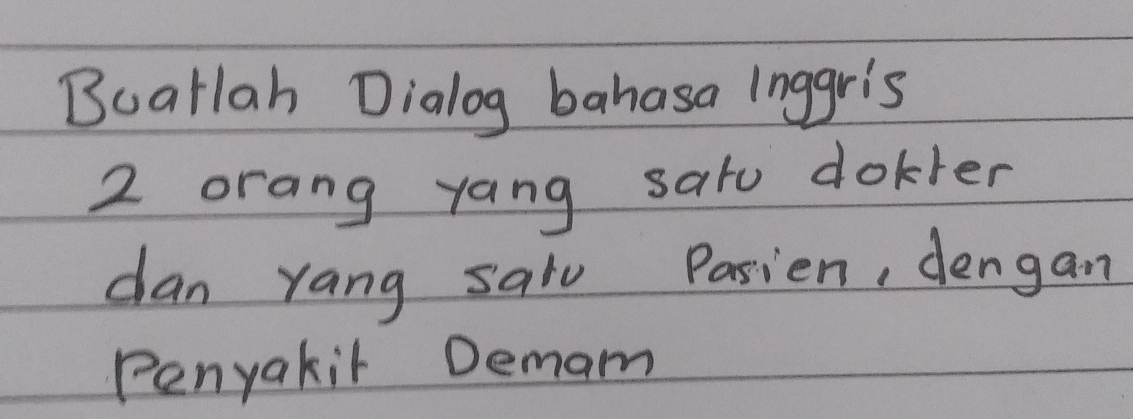 Buatlah Dialog bahasa Inggris
2 orang yang satu dokter
dan yang satu Pasien, dengan
Penyakit Demam